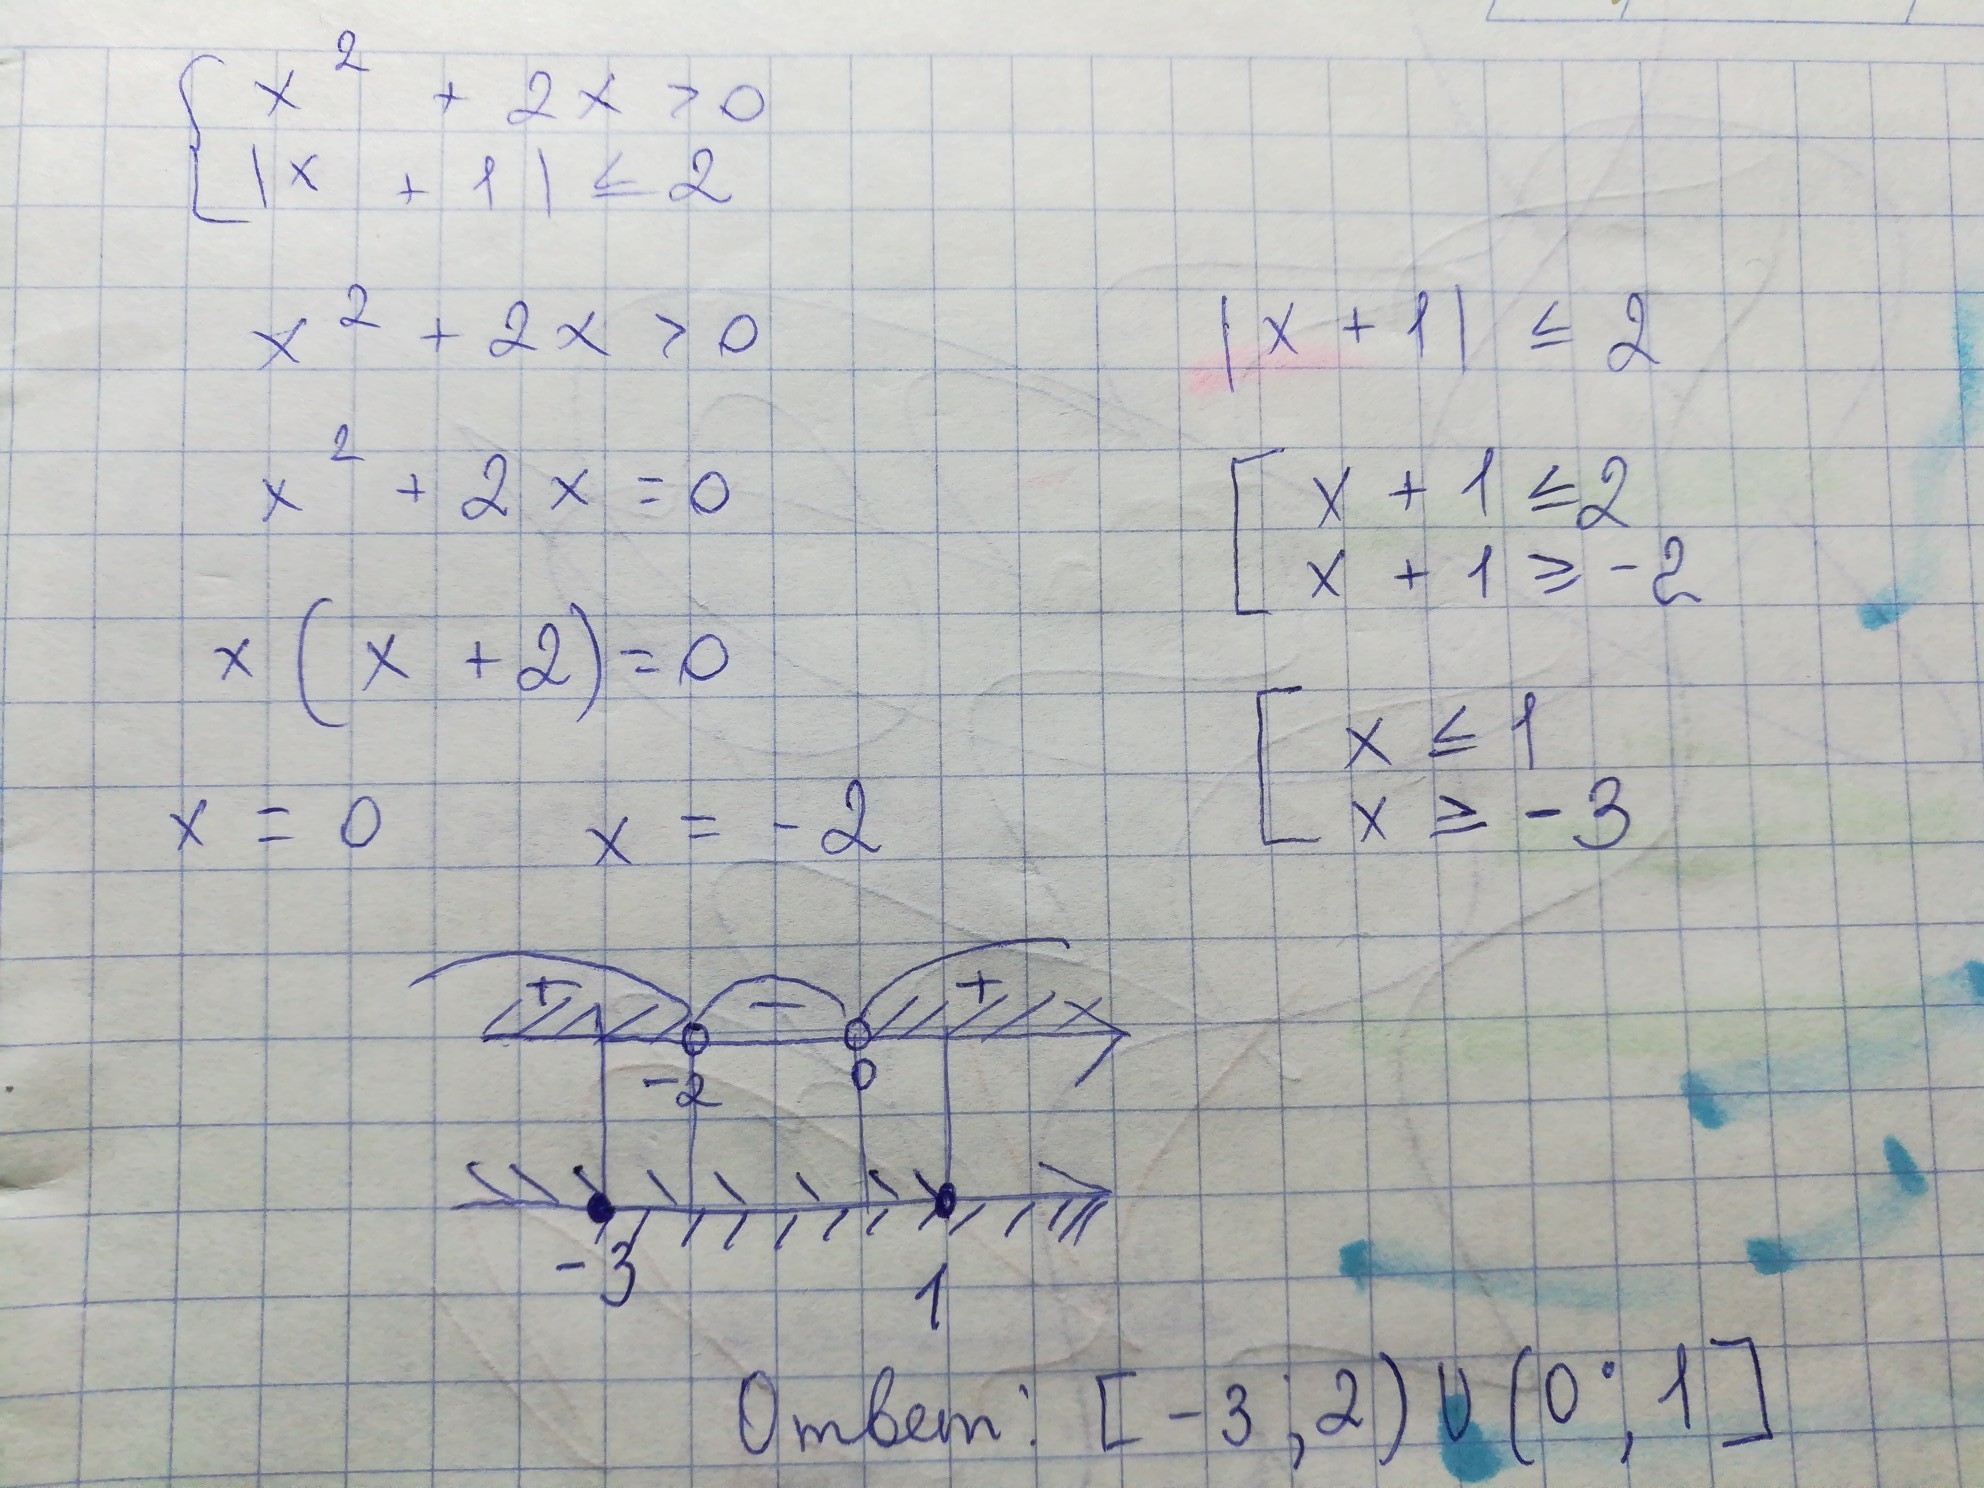 x² + 2x > 0
|x + 1| ≤ 2
x² + 2x > 0
x² + 2x = 0
x(x + 2) = 0
x = 0    x = -2
|x + 1| ≤ 2
x + 1 ≤ 2
x + 1 ≥ -2
x ≤ 1
x ≥ -3
+ − +
-2 0
-3 1
Ответ: [-3; 2) ∪ (0; 1]